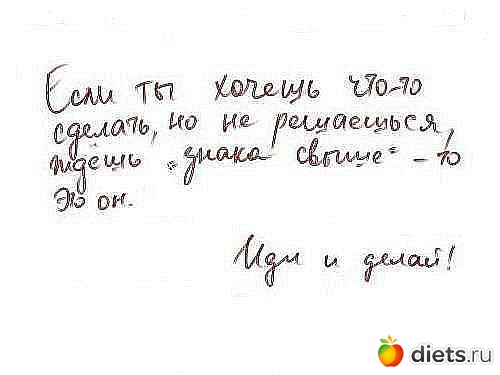 Если ты хочешь что-то
сделать, но не решаешься,
ждёшь "знака свыше" - то
это он.
Иди и делай!
diets.ru